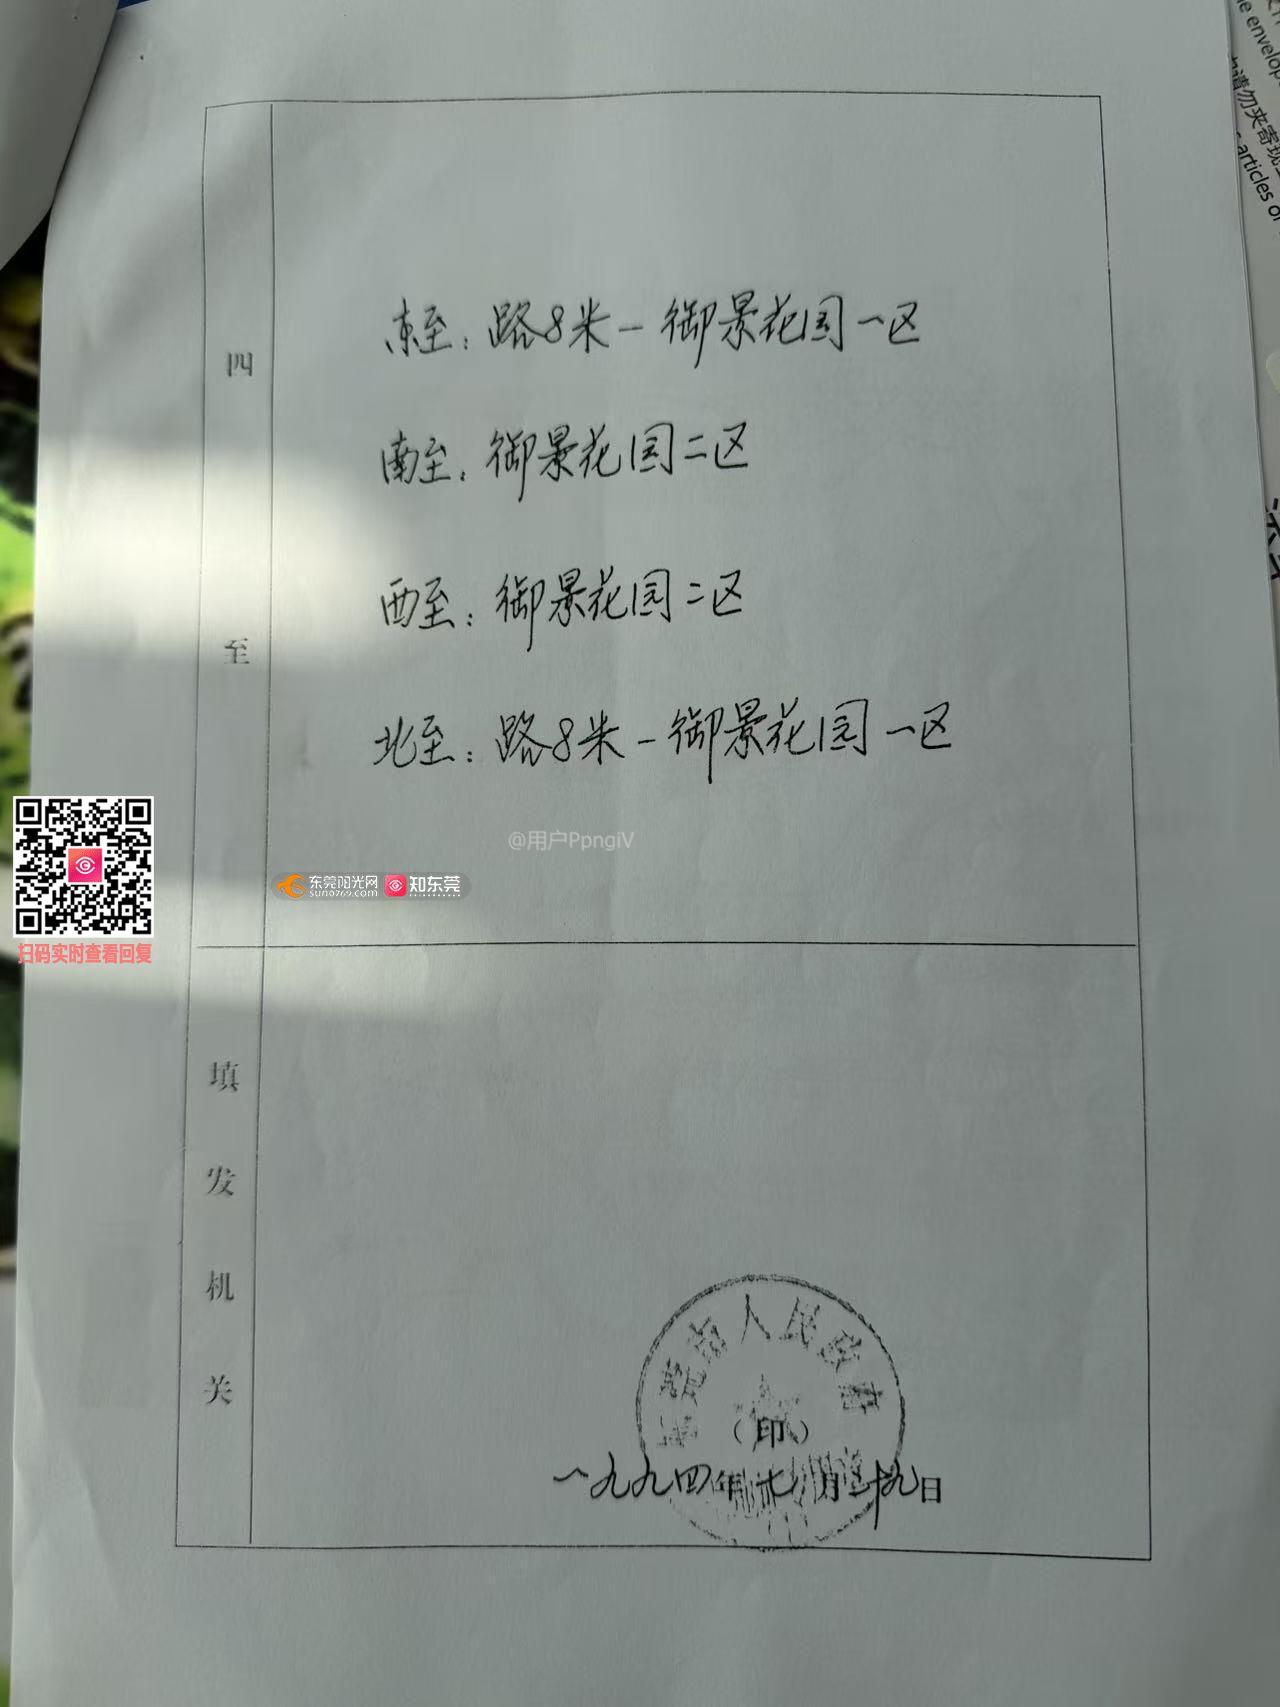 四至
东至：路8米－御景花园一区
南至：御景花园二区
西至：御景花园二区
北至：路8米－御景花园一区
@用户PpngiV
东莞阳光网
sun0769.com
知东莞
扫码实时查看回复
填发机关
东莞市人民政府
（印）
一九九四年 月 十九日
e envelop
请勿夹寄现
articles of